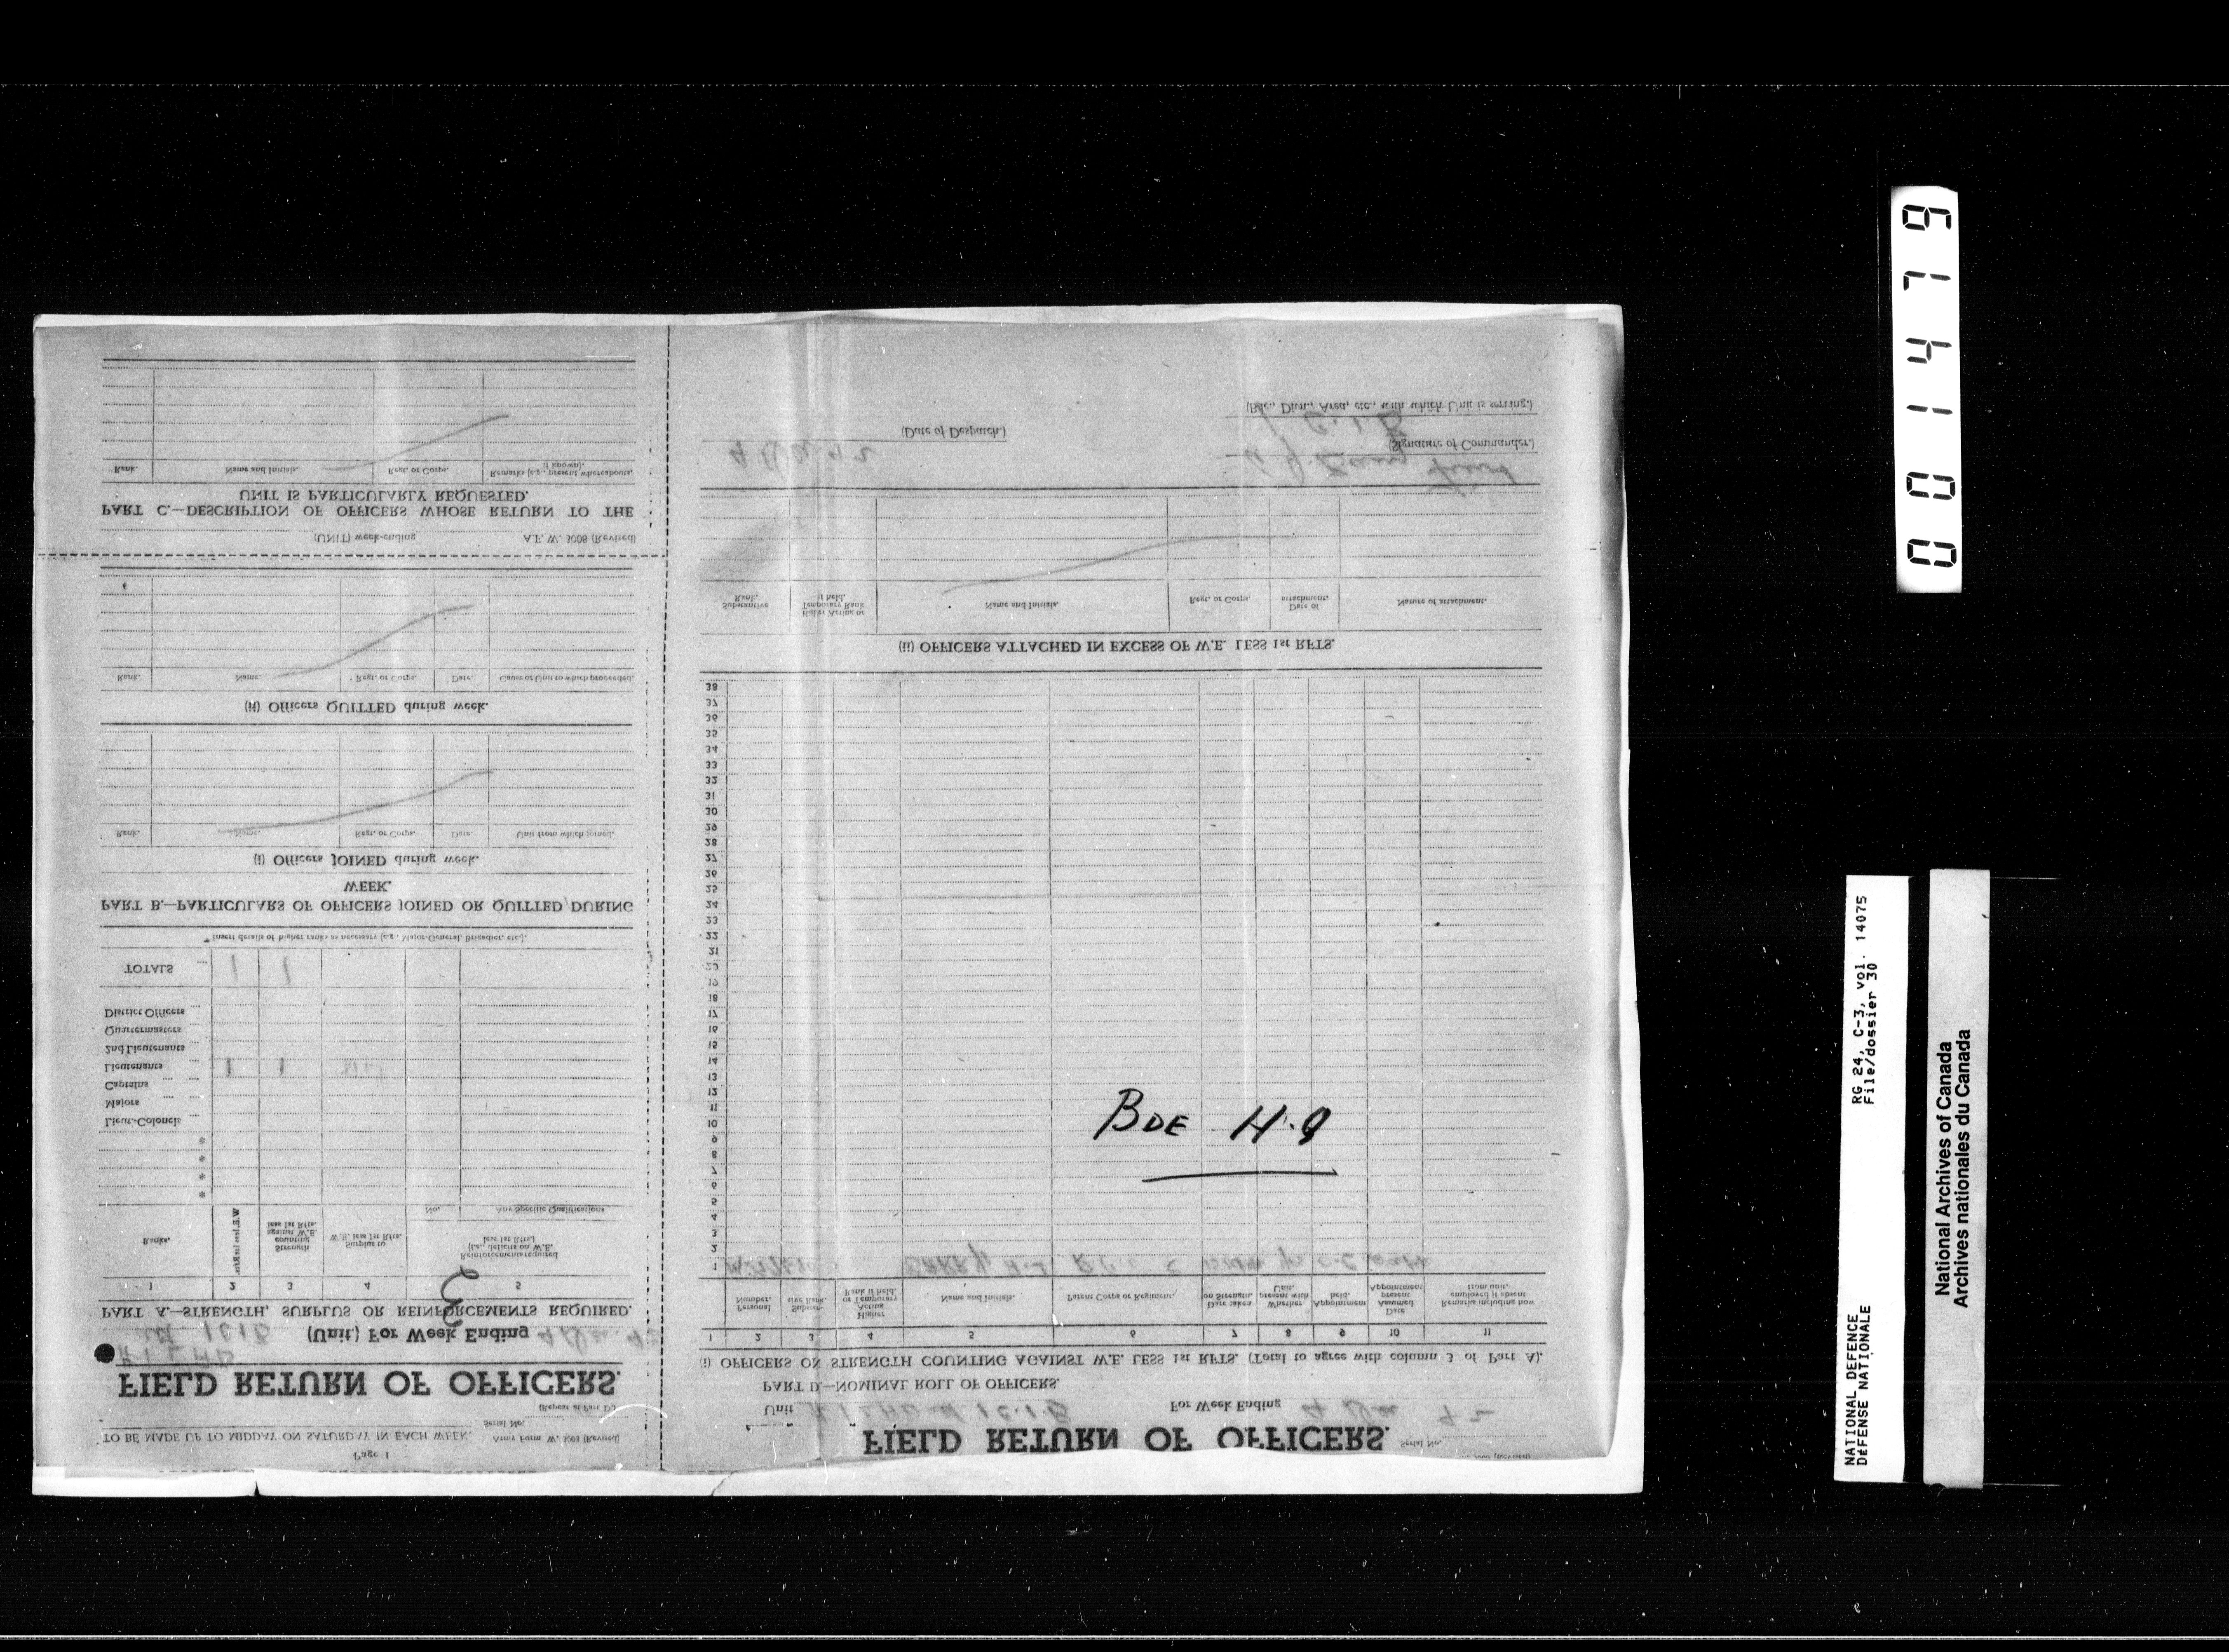 Page 1
TO BE MADE UP TO MIDDAY ON SATURDAY IN EACH WEEK.
Army Form W. 3008 (Revised)
Serial No.
(Repeat at Part D.)
FIELD RETURN OF OFFICERS.
(Unit) For Week Ending
PART A.—STRENGTH, SURPLUS OR REINFORCEMENTS REQUIRED.
1 2 3 4 5
Ranks.
Strength counting against W.E. less 1st Rfts.
Surplus to W.E. less 1st Rfts.
Reinforcements required (i.e., deficits on W.E. less 1st Rfts.)
No. Any Specific Qualifications
*
*
*
*
Lieut.-Colonels ...
Majors ...
Captains ...
Lieutenants ... 1 1
2nd Lieutenants
Quartermasters ...
District Officers
TOTALS ... 1 1
* Insert details of higher ranks as necessary (e.g., Major-General, Brigadier, etc.).
PART B.—PARTICULARS OF OFFICERS JOINED OR QUITTED DURING
WEEK.
(i) Officers JOINED during week.
Rank. Name. Regt. or Corps. Date. Unit from which joined.
(ii) Officers QUITTED during week.
Rank. Name. Regt. or Corps. Date. Cause or Unit to which proceeded.
A.F. W. 3008 (Revised)
(UNIT) week-ending
PART C.—DESCRIPTION OF OFFICERS WHOSE RETURN TO THE
UNIT IS PARTICULARLY REQUESTED.
Rank. Name and Initials. Regt. or Corps. Remarks (e.g., present whereabouts, if known).
FIELD RETURN OF OFFICERS.
Serial No.
Unit
For Week Ending
PART D.—NOMINAL ROLL OF OFFICERS.
(i) OFFICERS ON STRENGTH COUNTING AGAINST W.E. LESS 1st RFTS. (Total to agree with column 3 of Part A).
1 2 3 4 5 6 7 8 9 10 11
Personal Number.
Substantive Rank.
Higher Acting or Temporary Rank if held.
Name and Initials.
Parent Corps or Regiment.
Date taken on Strength.
Whether present with Unit.
Appointment held.
Date Assumed present Appointment
Remarks including how employed if absent from unit.
1
2
3
4
5
6
7
8
9
10
11
12
13
14
15
16
17
18
19
20
21
22
23
24
25
26
27
28
29
30
31
32
33
34
35
36
37
38
BDE H.Q
(ii) OFFICERS ATTACHED IN EXCESS OF W.E. LESS 1st RFTS.
Substantive Rank.
Higher Acting or Temporary Rank if held.
Name and Initials.
Regt. or Corps.
Date of attachment.
Nature of attachment.
(Signature of Commander.)
(Date of Despatch.)
(Bde., Divn., Area, etc., with which Unit is serving.)
001479
NATIONAL DEFENCE
DÉFENSE NATIONALE
RG 24, C-3, vol. 14075
File/dossier 30
National Archives of Canada
Archives nationales du Canada